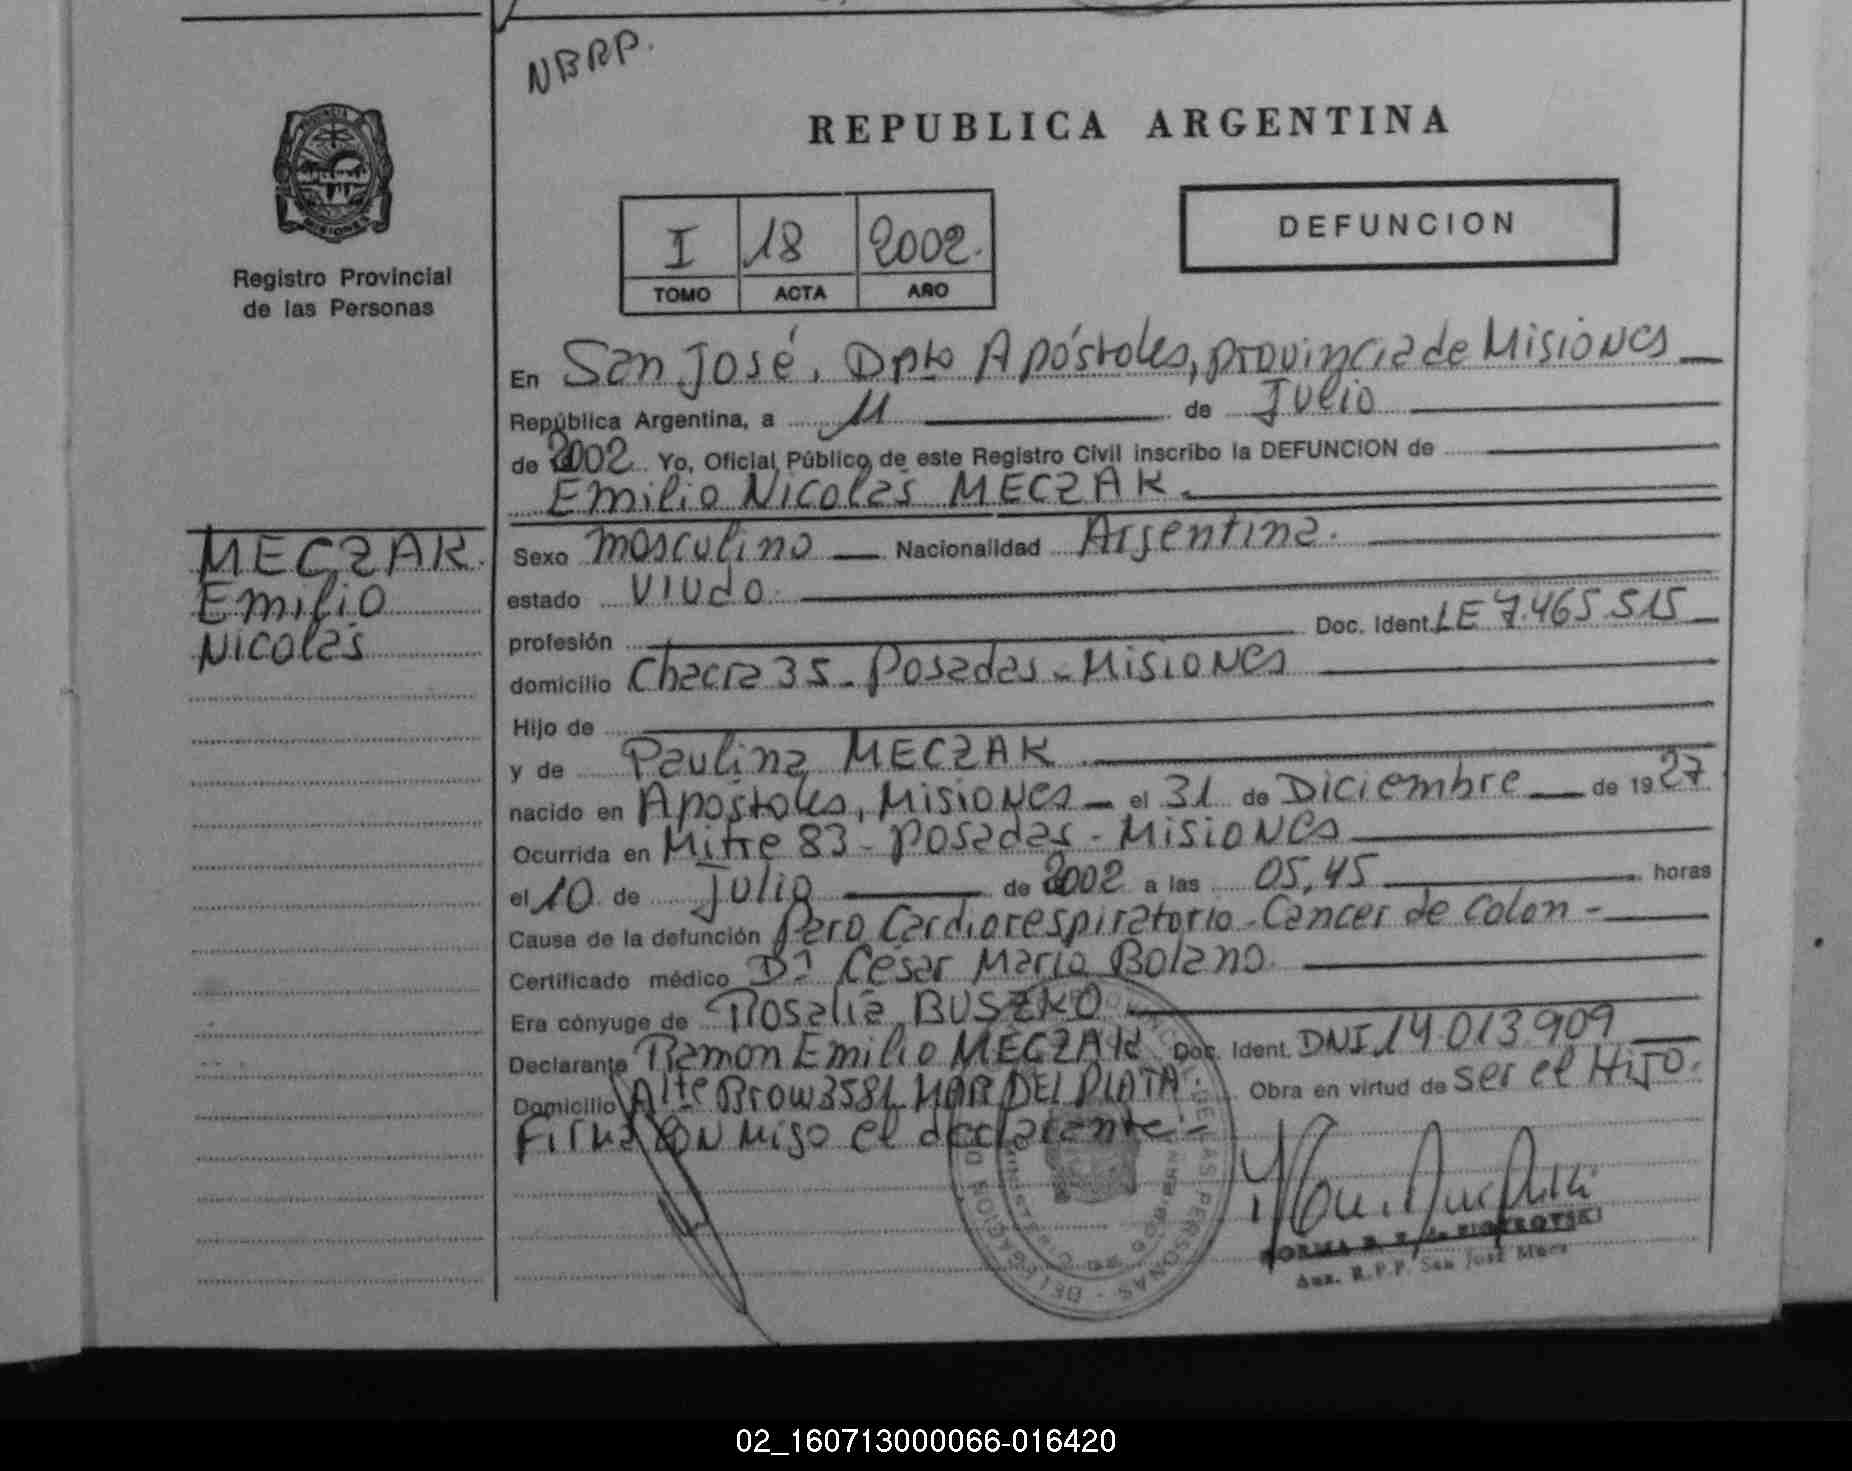 NBRP.
REPUBLICA ARGENTINA
Registro Provincial
de las Personas
I 18 2002.
TOMO ACTA AÑO
DEFUNCION
En San José, Dpto Apóstoles, provincia de Misiones
República Argentina, a 11 de Julio
de 2002 Yo, Oficial Público de este Registro Civil inscribo la DEFUNCION de
Emilio Nicolás MECZAK.
MECZAK.
Emilio
Nicolás
Sexo masculino Nacionalidad Argentina.
estado viudo.
profesión Doc. Ident. LE 7.465.515
domicilio Chacra 35 - Posadas - Misiones
Hijo de
y de Paulina MECZAK
nacido en Apóstoles, Misiones - el 31 de Diciembre de 1927
Ocurrida en Mitre 83 - Posadas - Misiones
el 10 de Julio de 2002 a las 05,45 horas
Causa de la defunción Paro Cardiorespiratorio - Cáncer de Colon -
Certificado médico Dr César Mario Bolano.
Era cónyuge de Rosalía BUSZKO
Declarante Ramon Emilio MECZAK Doc. Ident. DNI 14.013.909
Domicilio Alte Brow 3581 MAR DEL PLATA. Obra en virtud de ser el Hijo.
Firma conmigo el declarante -
NORMA B. F. de PIOTROVSKI
Aux. R.P.P. San José Mnes
02_160713000066-016420